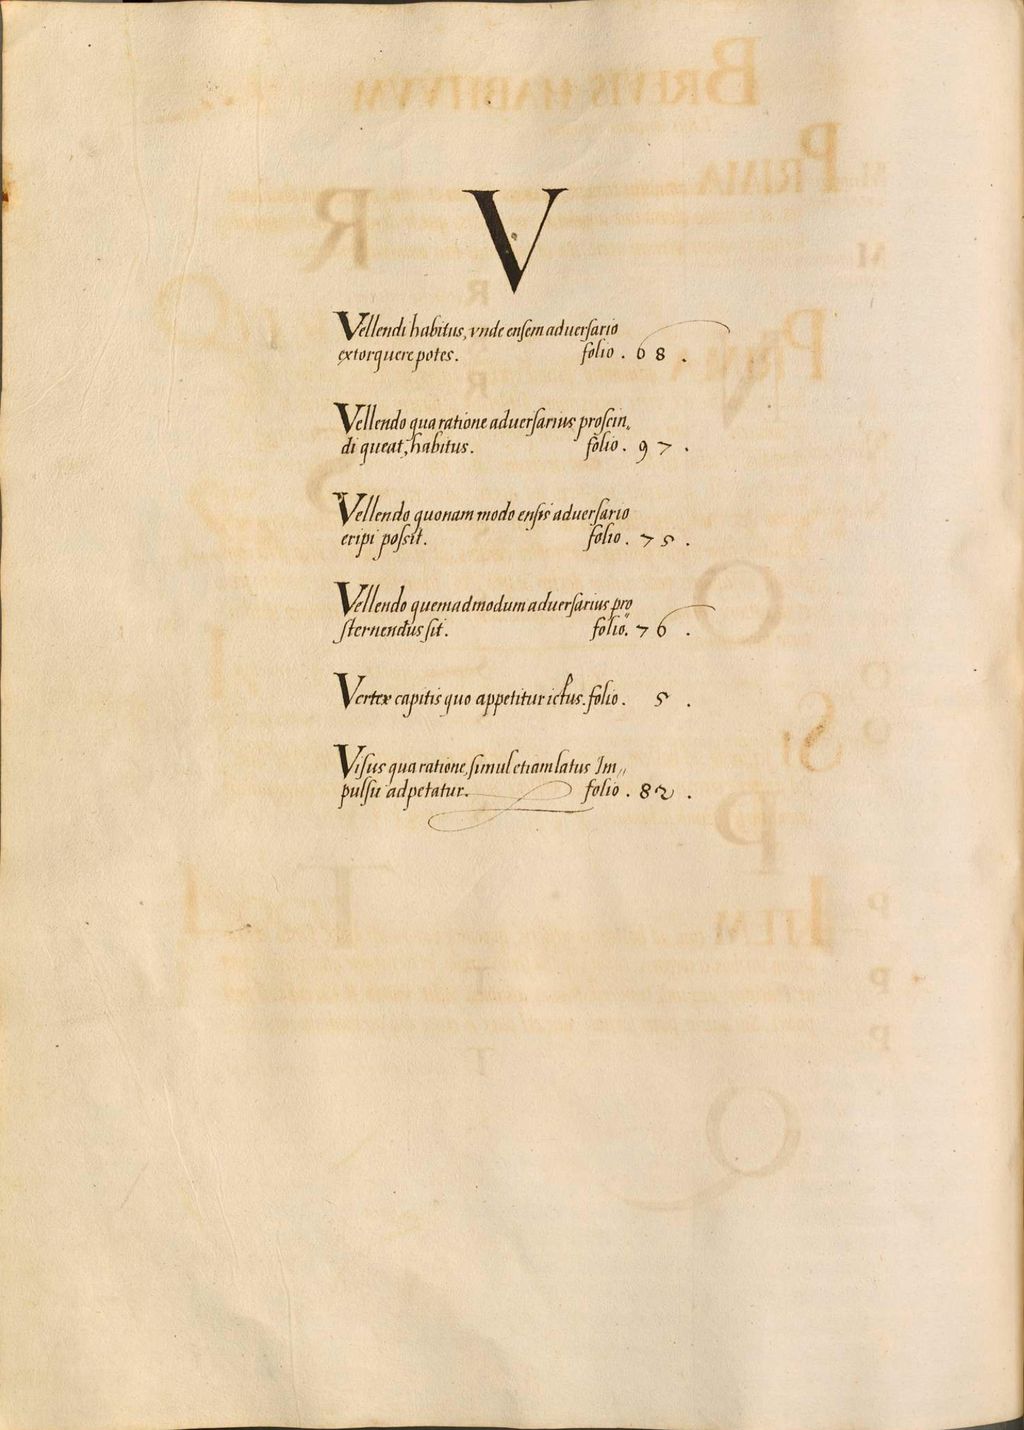 V
Vellendi habitus, vnde ensem aduersario
extorquere potes. folio . 68 .
Vellendo qua ratione aduersarius proscin„
di queat, habitus. folio . 97 .
Vellendo quonam modo ensis aduersario
eripi possit. folio . 75 .
Vellendo quemadmodum aduersarius pro„
sternendus sit. folio. 76 .
Vertex capitis quo appetitur ictus. folio . 5 .
Visus qua ratione, simul etiam latus Im„
pulsu adpetatur. folio . 82 .